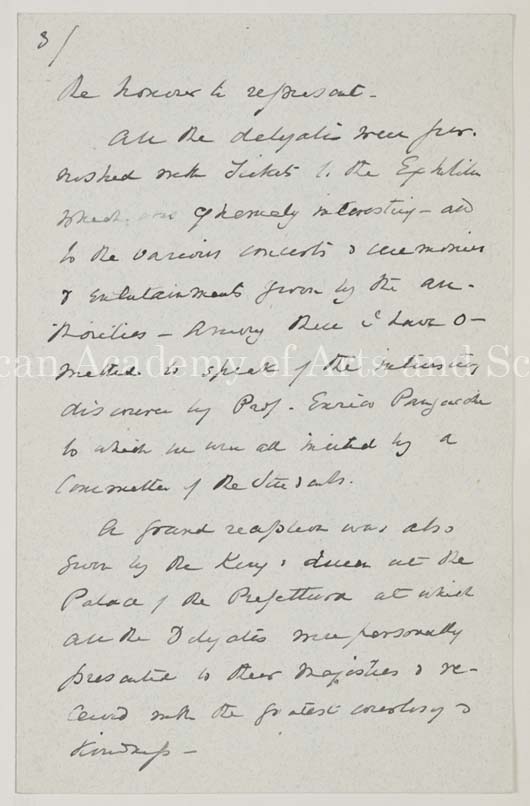 8/
the honour to represent –
All the delegates were fur-
nished with Tickets to the Exhibition
which are extremely interesting – and
to the various concerts & ceremonies
& entertainments given by the au-
thorities – Among these I have o-
mitted to speak of the interesting
can Academy of Arts and Sc
discourse by Prof. Enrico Panzacchi
to which we were all invited by a
Committee of the Students.
A grand reception was also
given by the King & Queen at the
Palace of the Prefettura at which
all the Delegates were personally
presented to their Majesties & re-
ceived with the greatest courtesy &
kindness –